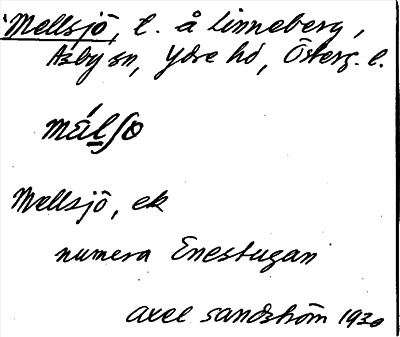 Mellsjö, l. å Linneberg,
Asby sn, Ydre hd, Österg. l.
Mellsjö, ek
numera Enestugan
Axel Sandström 1930